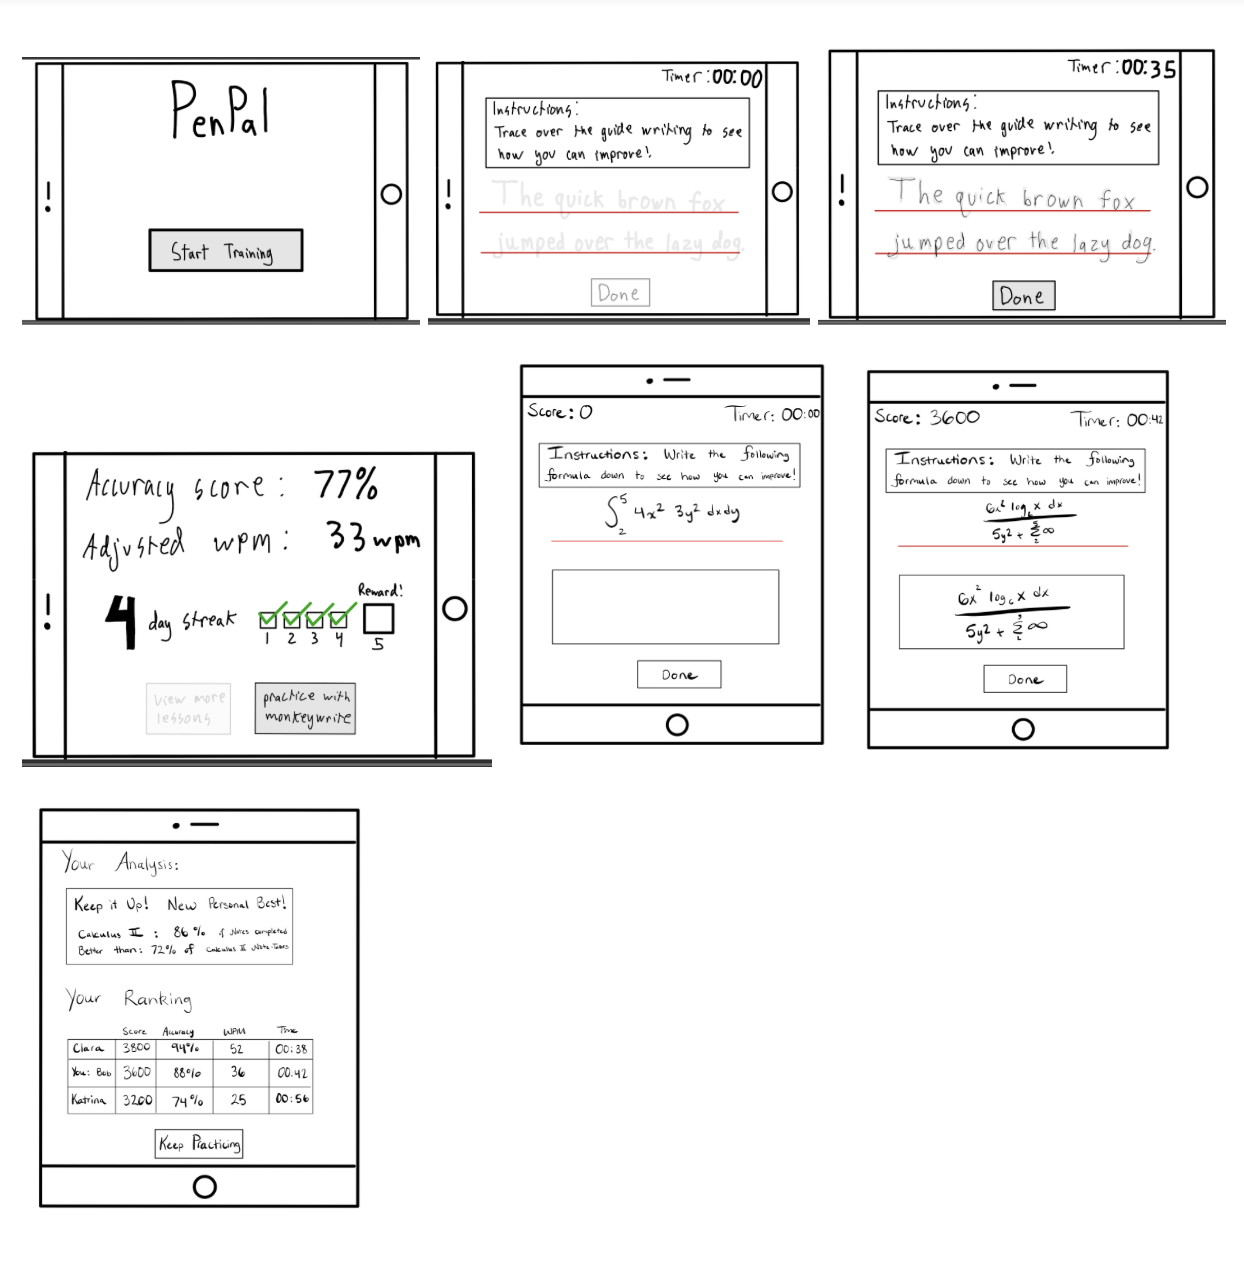 PenPal
Start Training
Timer: 00:00
Instructions:
Trace over the guide writing to see
how you can improve!
The quick brown fox
jumped over the lazy dog.
Done
Timer: 00:35
Instructions:
Trace over the guide writing to see
how you can improve!
The quick brown fox
jumped over the lazy dog.
Done
Accuracy score: 77%
Adjusted wpm: 33 wpm
Reward!
4 day streak
1 2 3 4 5
view more
lessons
practice with
monkeywrite
Score: 0 Timer: 00:00
Instructions: Write the following
formula down to see how you can improve!
∫₂⁵ 4x² 3y² dxdy
Done
Score: 3600 Timer: 00:42
Instructions: Write the following
formula down to see how you can improve!
6x² log₆ x dx
5y² + ∞
6x² log₆ x dx
5y² + ∞
Done
Your Analysis:
Keep it Up! New Personal Best!
Calculus II: 86% of Notes completed
Better than: 72% of Calculus II Note-Takers
Your Ranking
Score Accuracy WPM Time
Clara 3800 94% 52 00:38
You: Bob 3600 88% 36 00:42
Katrina 3200 74% 25 00:56
Keep Practicing